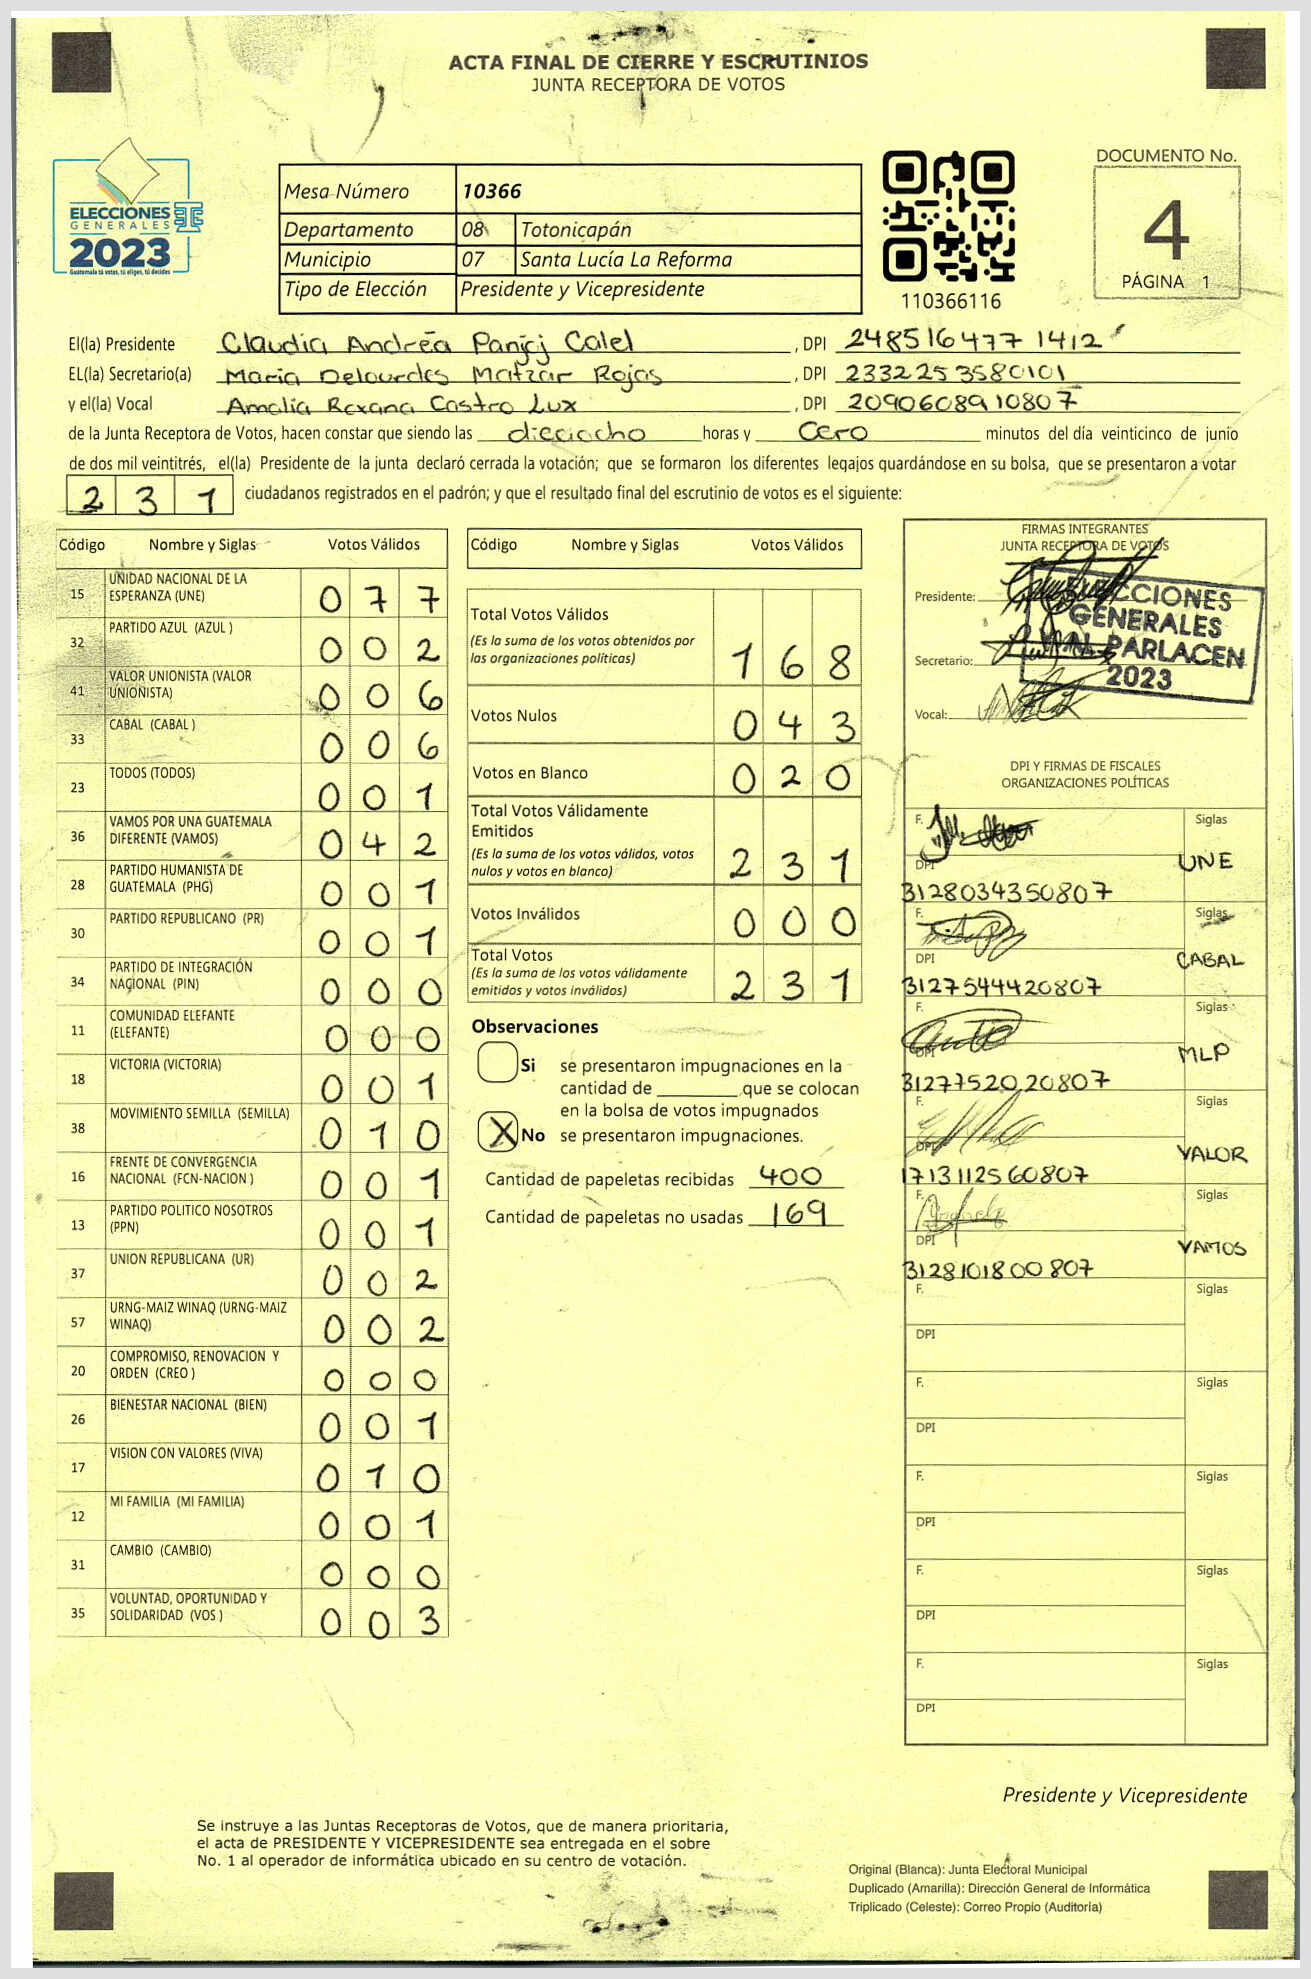 ACTA FINAL DE CIERRE Y ESCRUTINIOS
JUNTA RECEPTORA DE VOTOS
ELECCIONES
GENERALES
2023
Guatemala tú votas, tú eliges, tú decides
Mesa Número 10366
Departamento 08 Totonicapán
Municipio 07 Santa Lucía La Reforma
Tipo de Elección Presidente y Vicepresidente
110366116
DOCUMENTO No.
4
PÁGINA 1
El(la) Presidente Claudia Andréa Panjoj Calel, DPI 248516477 1412
EL(la) Secretario(a) Maria Delourdes Matzar Rojas, DPI 2332253580101
y el(la) Vocal Amalia Roxana Castro Lux, DPI 2090608910807
de la Junta Receptora de Votos, hacen constar que siendo las dieciocho horas y Cero minutos del día veinticinco de junio
de dos mil veintitrés, el(la) Presidente de la junta declaró cerrada la votación; que se formaron los diferentes legajos guardándose en su bolsa, que se presentaron a votar
231 ciudadanos registrados en el padrón; y que el resultado final del escrutinio de votos es el siguiente:
Código Nombre y Siglas Votos Válidos
15 UNIDAD NACIONAL DE LA ESPERANZA (UNE) 077
32 PARTIDO AZUL (AZUL ) 002
41 VALOR UNIONISTA (VALOR UNIONISTA) 006
33 CABAL (CABAL ) 006
23 TODOS (TODOS) 001
36 VAMOS POR UNA GUATEMALA DIFERENTE (VAMOS) 042
28 PARTIDO HUMANISTA DE GUATEMALA (PHG) 001
30 PARTIDO REPUBLICANO (PR) 001
34 PARTIDO DE INTEGRACIÓN NACIONAL (PIN) 000
11 COMUNIDAD ELEFANTE (ELEFANTE) 000
18 VICTORIA (VICTORIA) 001
38 MOVIMIENTO SEMILLA (SEMILLA) 010
16 FRENTE DE CONVERGENCIA NACIONAL (FCN-NACION ) 001
13 PARTIDO POLITICO NOSOTROS (PPN) 001
37 UNION REPUBLICANA (UR) 002
57 URNG-MAIZ WINAQ (URNG-MAIZ WINAQ) 002
20 COMPROMISO, RENOVACION Y ORDEN (CREO ) 000
26 BIENESTAR NACIONAL (BIEN) 001
17 VISION CON VALORES (VIVA) 010
12 MI FAMILIA (MI FAMILIA) 001
31 CAMBIO (CAMBIO) 000
35 VOLUNTAD, OPORTUNIDAD Y SOLIDARIDAD (VOS ) 003
Código Nombre y Siglas Votos Válidos
Total Votos Válidos 168
(Es la suma de los votos obtenidos por las organizaciones políticas)
Votos Nulos 043
Votos en Blanco 020
Total Votos Válidamente Emitidos 231
(Es la suma de los votos válidos, votos nulos y votos en blanco)
Votos Inválidos 000
Total Votos 231
(Es la suma de los votos válidamente emitidos y votos inválidos)
Observaciones
Si se presentaron impugnaciones en la
cantidad de ________ que se colocan
en la bolsa de votos impugnados
X No se presentaron impugnaciones.
Cantidad de papeletas recibidas 400
Cantidad de papeletas no usadas 169
FIRMAS INTEGRANTES
JUNTA RECEPTORA DE VOTOS
Presidente:
Secretario:
Vocal:
ELECCIONES
GENERALES
PARLACEN
2023
DPI Y FIRMAS DE FISCALES
ORGANIZACIONES POLÍTICAS
F. Siglas
DPI UNE
3128034350807
F. Siglas
DPI CABAL
3127544420807
Siglas
DPI MLP
3127752020807
F. Siglas
DPI VALOR
1713112560807
F. Siglas
DPI VAMOS
3128101800807
F. Siglas
DPI
F. Siglas
DPI
F. Siglas
DPI
F. Siglas
DPI
F. Siglas
DPI
Presidente y Vicepresidente
Se instruye a las Juntas Receptoras de Votos, que de manera prioritaria,
el acta de PRESIDENTE Y VICEPRESIDENTE sea entregada en el sobre
No. 1 al operador de informática ubicado en su centro de votación.
Original (Blanca): Junta Electoral Municipal
Duplicado (Amarilla): Dirección General de Informática
Triplicado (Celeste): Correo Propio (Auditoría)